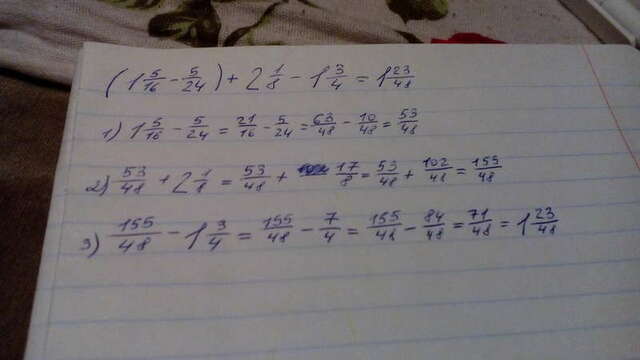 (1 5/16 - 5/24) + 2 1/8 - 1 3/4 = 1 23/48
1) 1 5/16 - 5/24 = 21/16 - 5/24 = 63/48 - 10/48 = 53/48
2) 53/48 + 2 1/8 = 53/48 + 17/8 = 53/48 + 102/48 = 155/48
3) 155/48 - 1 3/4 = 155/48 - 7/4 = 155/48 - 84/48 = 71/48 = 1 23/48